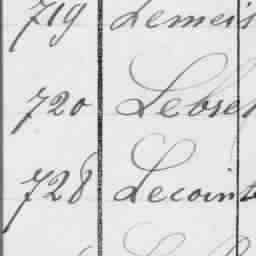 719 Lemeis
720 Lebret
728 Lecoint